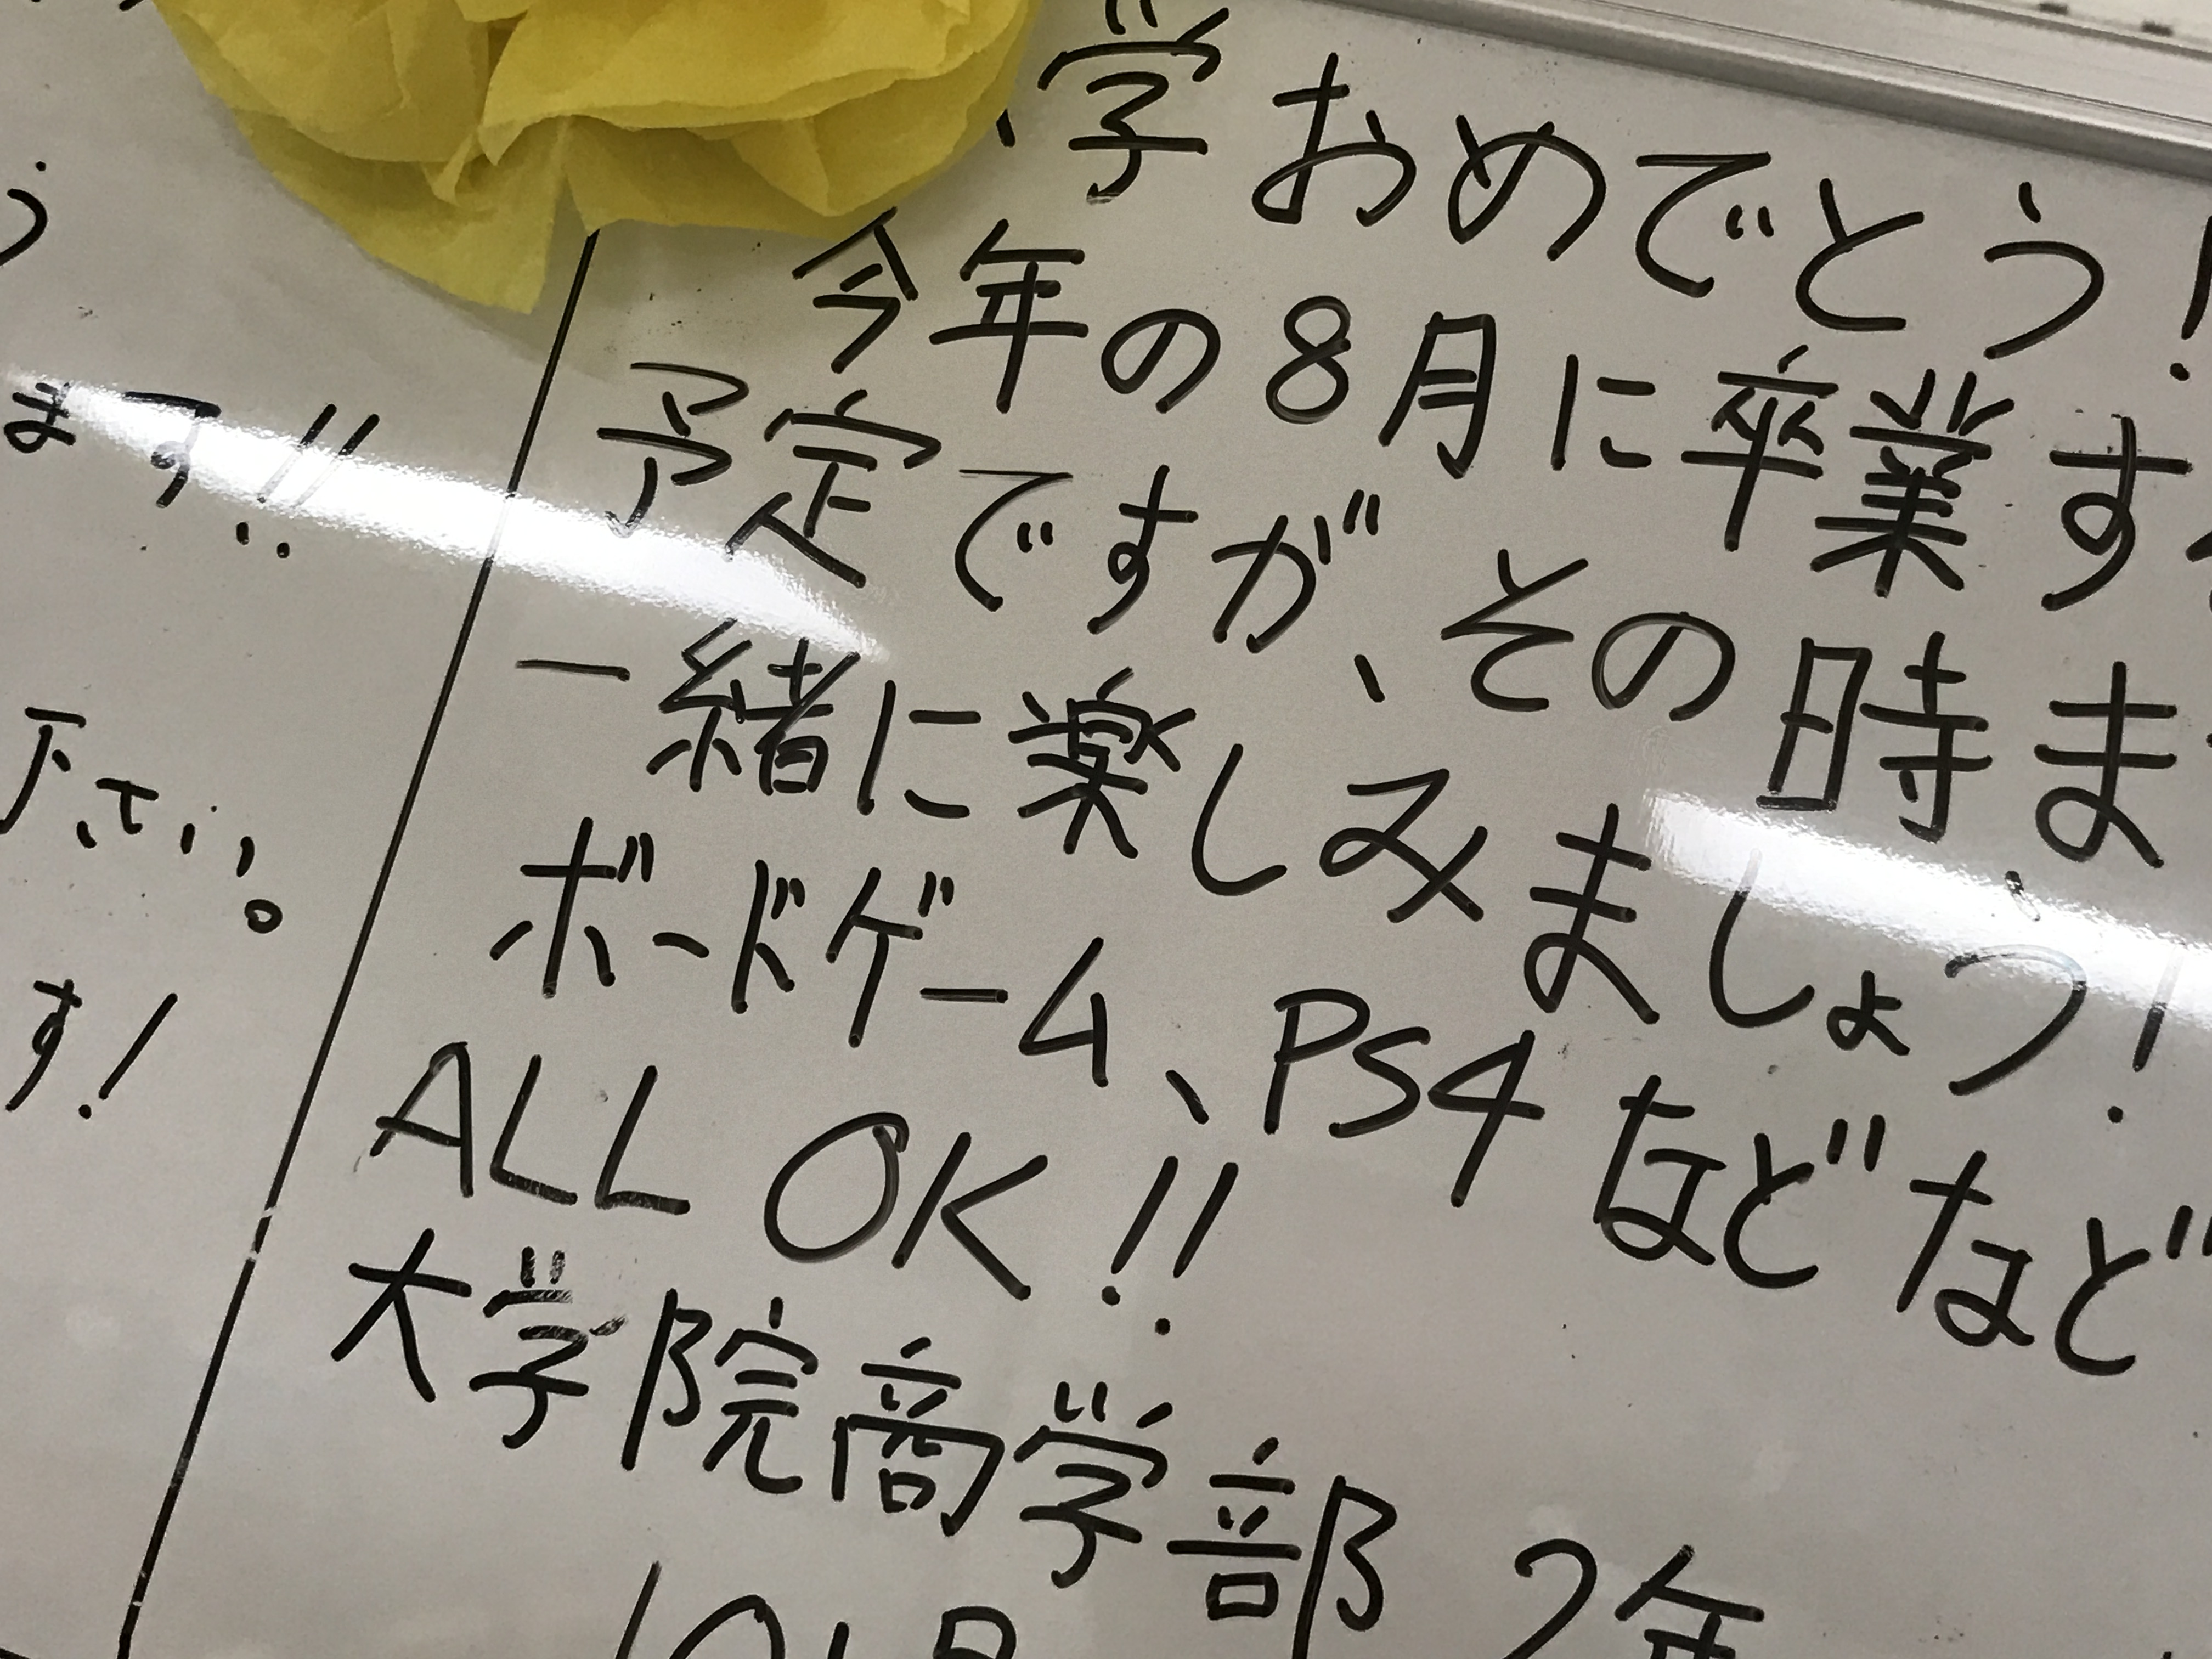 う
ます!!
下さい。
す!
学おめでとう!
今年の8月に卒業す
予定ですが、その時ま
一緒に楽しみましょう!
ボードゲーム、PS4などなど
ALL OK!!
大学院商学部 2年